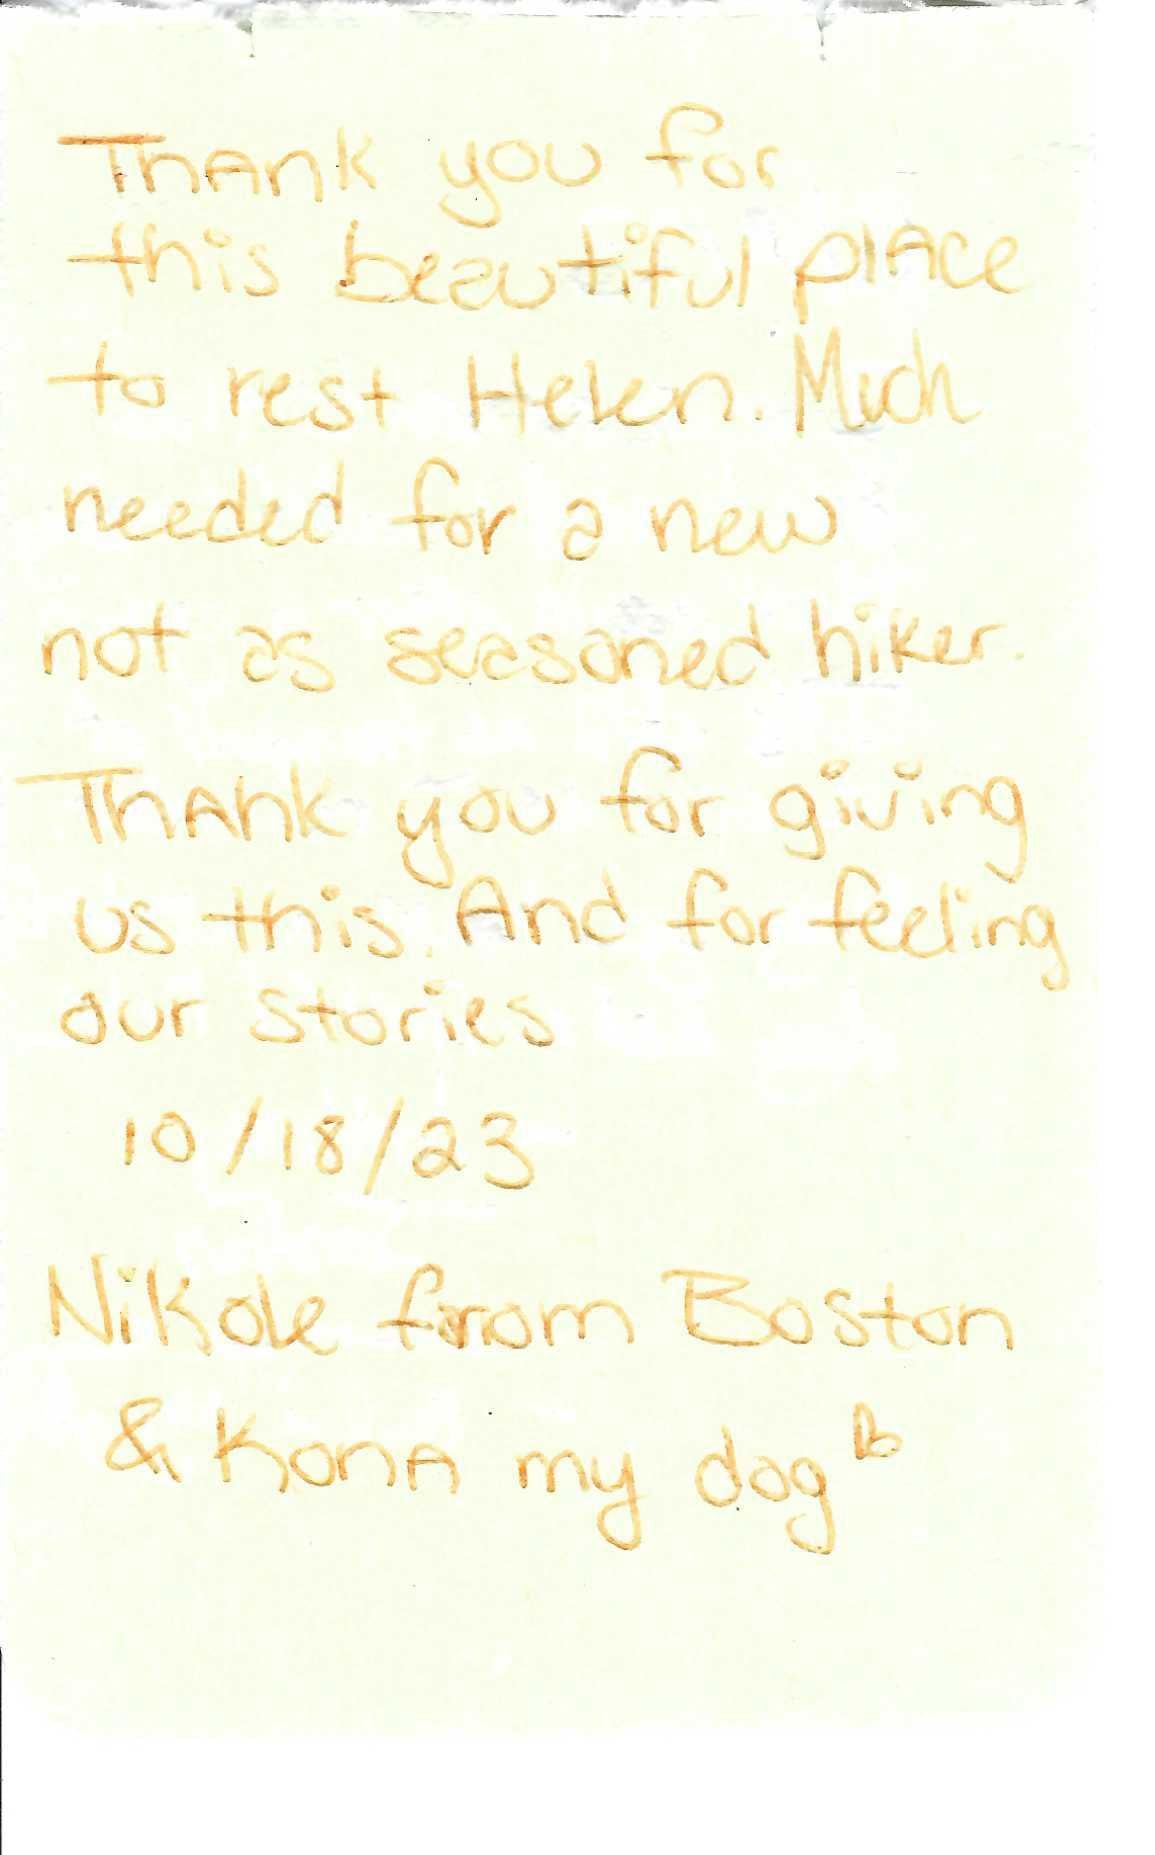 Thank you for
this beautiful place
to rest Helen. Much
needed for a new
not as seasoned hiker.
Thank you for giving
us this. And for feeling
our stories
10/18/23
Nikole from Boston
& Kona my dog